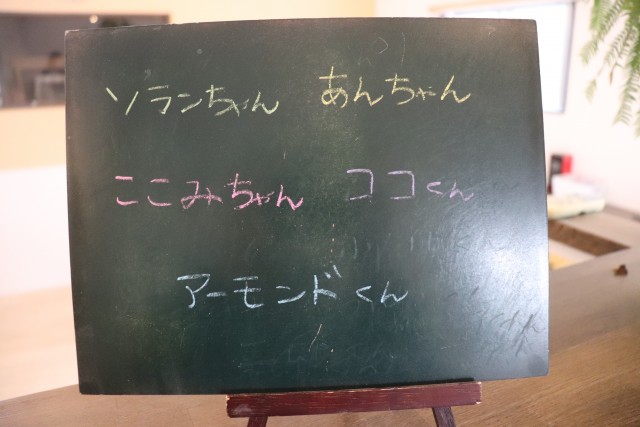 ソランちゃん あんちゃん
ここみちゃん ココくん
アーモンドくん